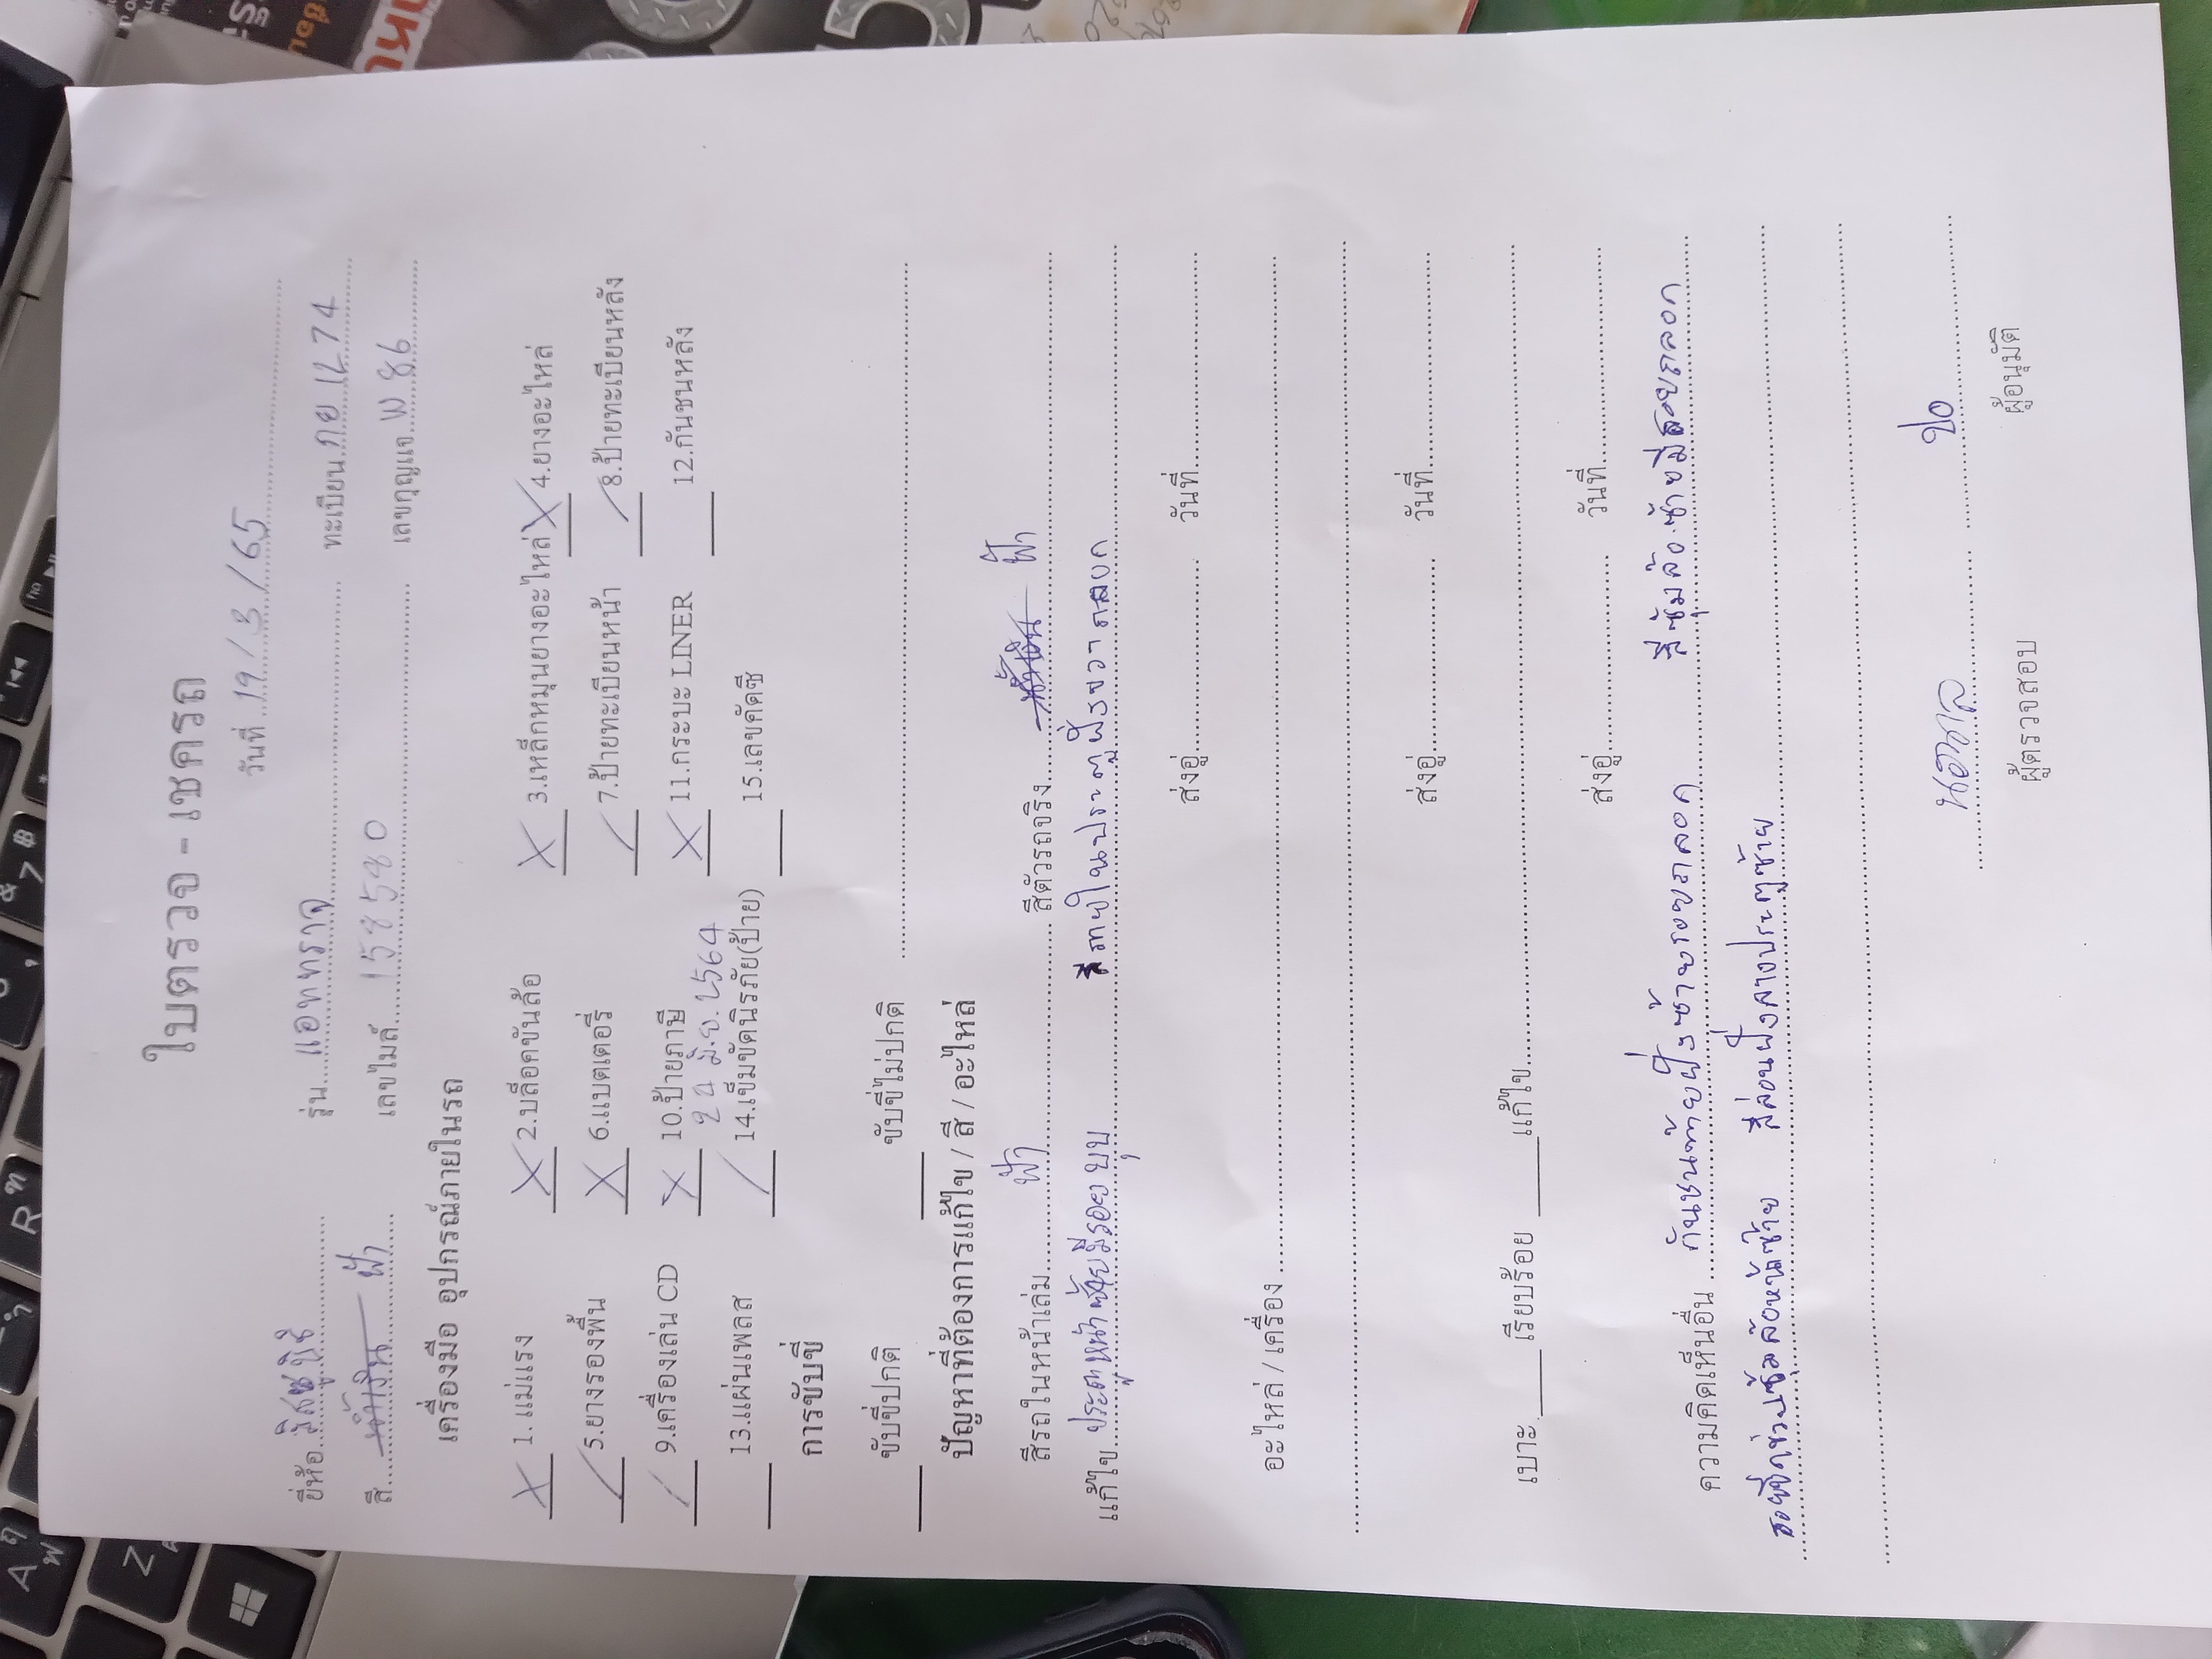 ใบตรวจ - เชครถ
วันที่ 19/3/65
ยี่ห้อ มิสซูบิชิ รุ่น แอททราจ ทะเบียน กย 1274
สี น้ำเงิน ฟ้า เลขไมล์ 158580 เลขกุญแจ W 86
เครื่องมือ อุปกรณ์ภายในรถ
X 1. แม่แรง X 2.บล็อคขันล้อ X 3.เหล็กหมุนยางอะไหล่ X 4.ยางอะไหล่
/ 5.ยางรองพื้น X 6.แบตเตอรี่ / 7.ป้ายทะเบียนหน้า / 8.ป้ายทะเบียนหลัง
/ 9.เครื่องเล่น CD X 10.ป้ายภาษี X 11.กระบะ LINER 12.กันชนหลัง
มิ.ย. 2564
13.แผ่นเพลส / 14.เข็มขัดนิรภัย(ป้าย) 15.เลขคัดซี
การขับขี่
ขับขี่ปกติ ขับขี่ไม่ปกติ
ปัญหาที่ต้องการแก้ไข / สี / อะไหล่
สีรถในหน้าเล่ม ฟ้า สีตัวรถจริง ฟ้า
แก้ไข ประตูหน้าซ้ายมีรอยบุบ สีภายในประตูฝั่งขวาถลอก
ส่งอู่ วันที่
อะไหล่ / เครื่อง
ส่งอู่ วันที่
เบาะ เรียบร้อย แก้ไข
ส่งอู่ วันที่
ความคิดเห็นอื่น กันชนท้ายฝั่งซ้ายรอยถลอก สีซุ้มล้อซ้ายมีรอยถลอก
ซุ้มล้อหน้าซ้าย สีล่อนฝั่งล่างประตูซ้าย
ผู้ตรวจสอบ ผู้อนุมัติ